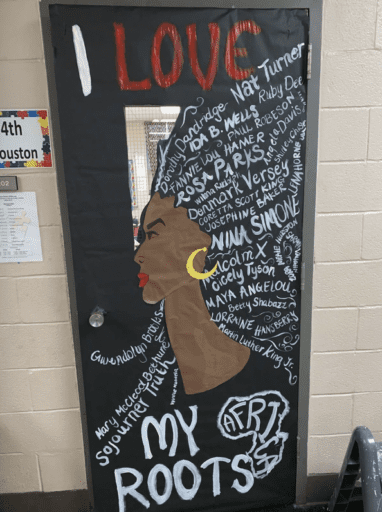 I LOVE
Nat Turner
Dorothy Dandridge
IDA B. WELLS
Ruby Dee
FANNIE LOU HAMER
PAUL ROBESON
ROSA PARKS
Angela Davis
Wilma Rudolph
Denmark Vesey
CORETTA SCOTT KING
JOSEPHINE BAKER
LENA HORNE
NINA SIMONE
Malcolm X
Cicely Tyson
MAYA ANGELOU
Betty Shabazz
LORRAINE HANSBERRY
Martin Luther King Jr.
Gwendolyn Brooks
Mary McCleod Bethune
Sojourner Truth
MY
ROOTS
AFRI
4th
ouston